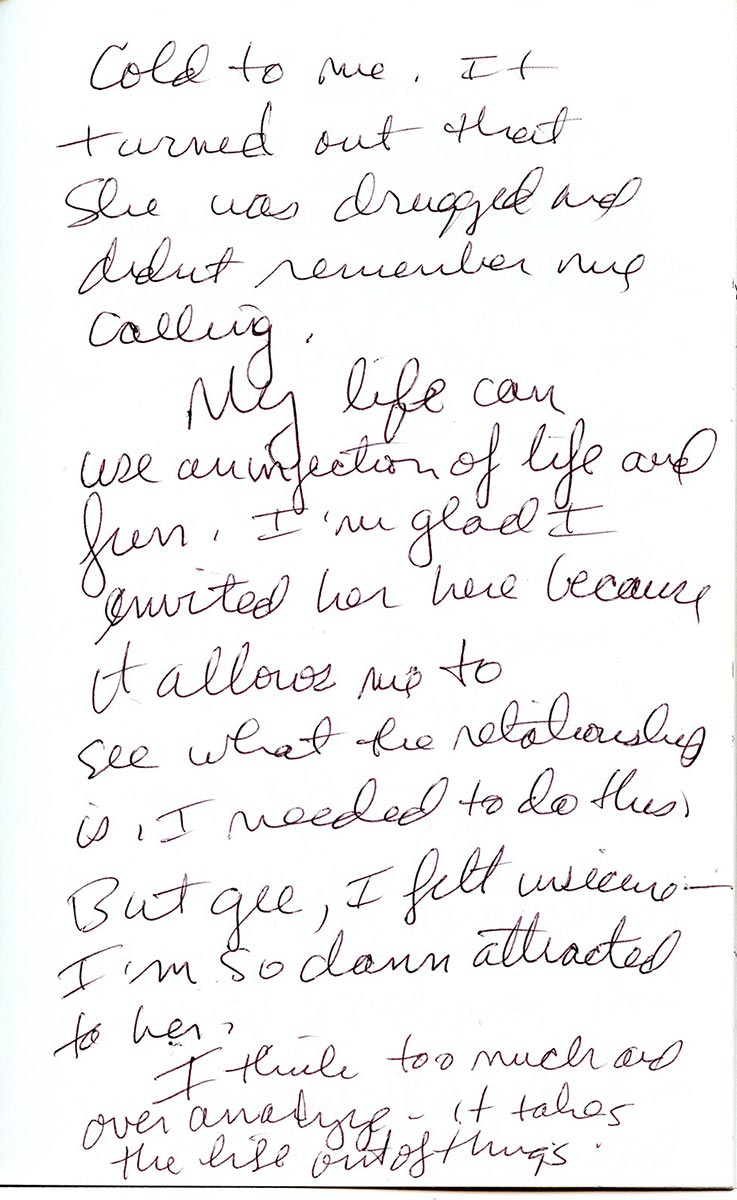 Cold to me. It
turned out that
She was drugged and
didnt remember me
Calling.
My life can
use an injection of life and
fun. I'm glad I
invited her here because
it allows me to
see what the relationship
is. I needed to do this.
But gee, I felt insecure –
I'm so damn attracted
to her.
I think too much and
over analyze – it takes
the life out of things.